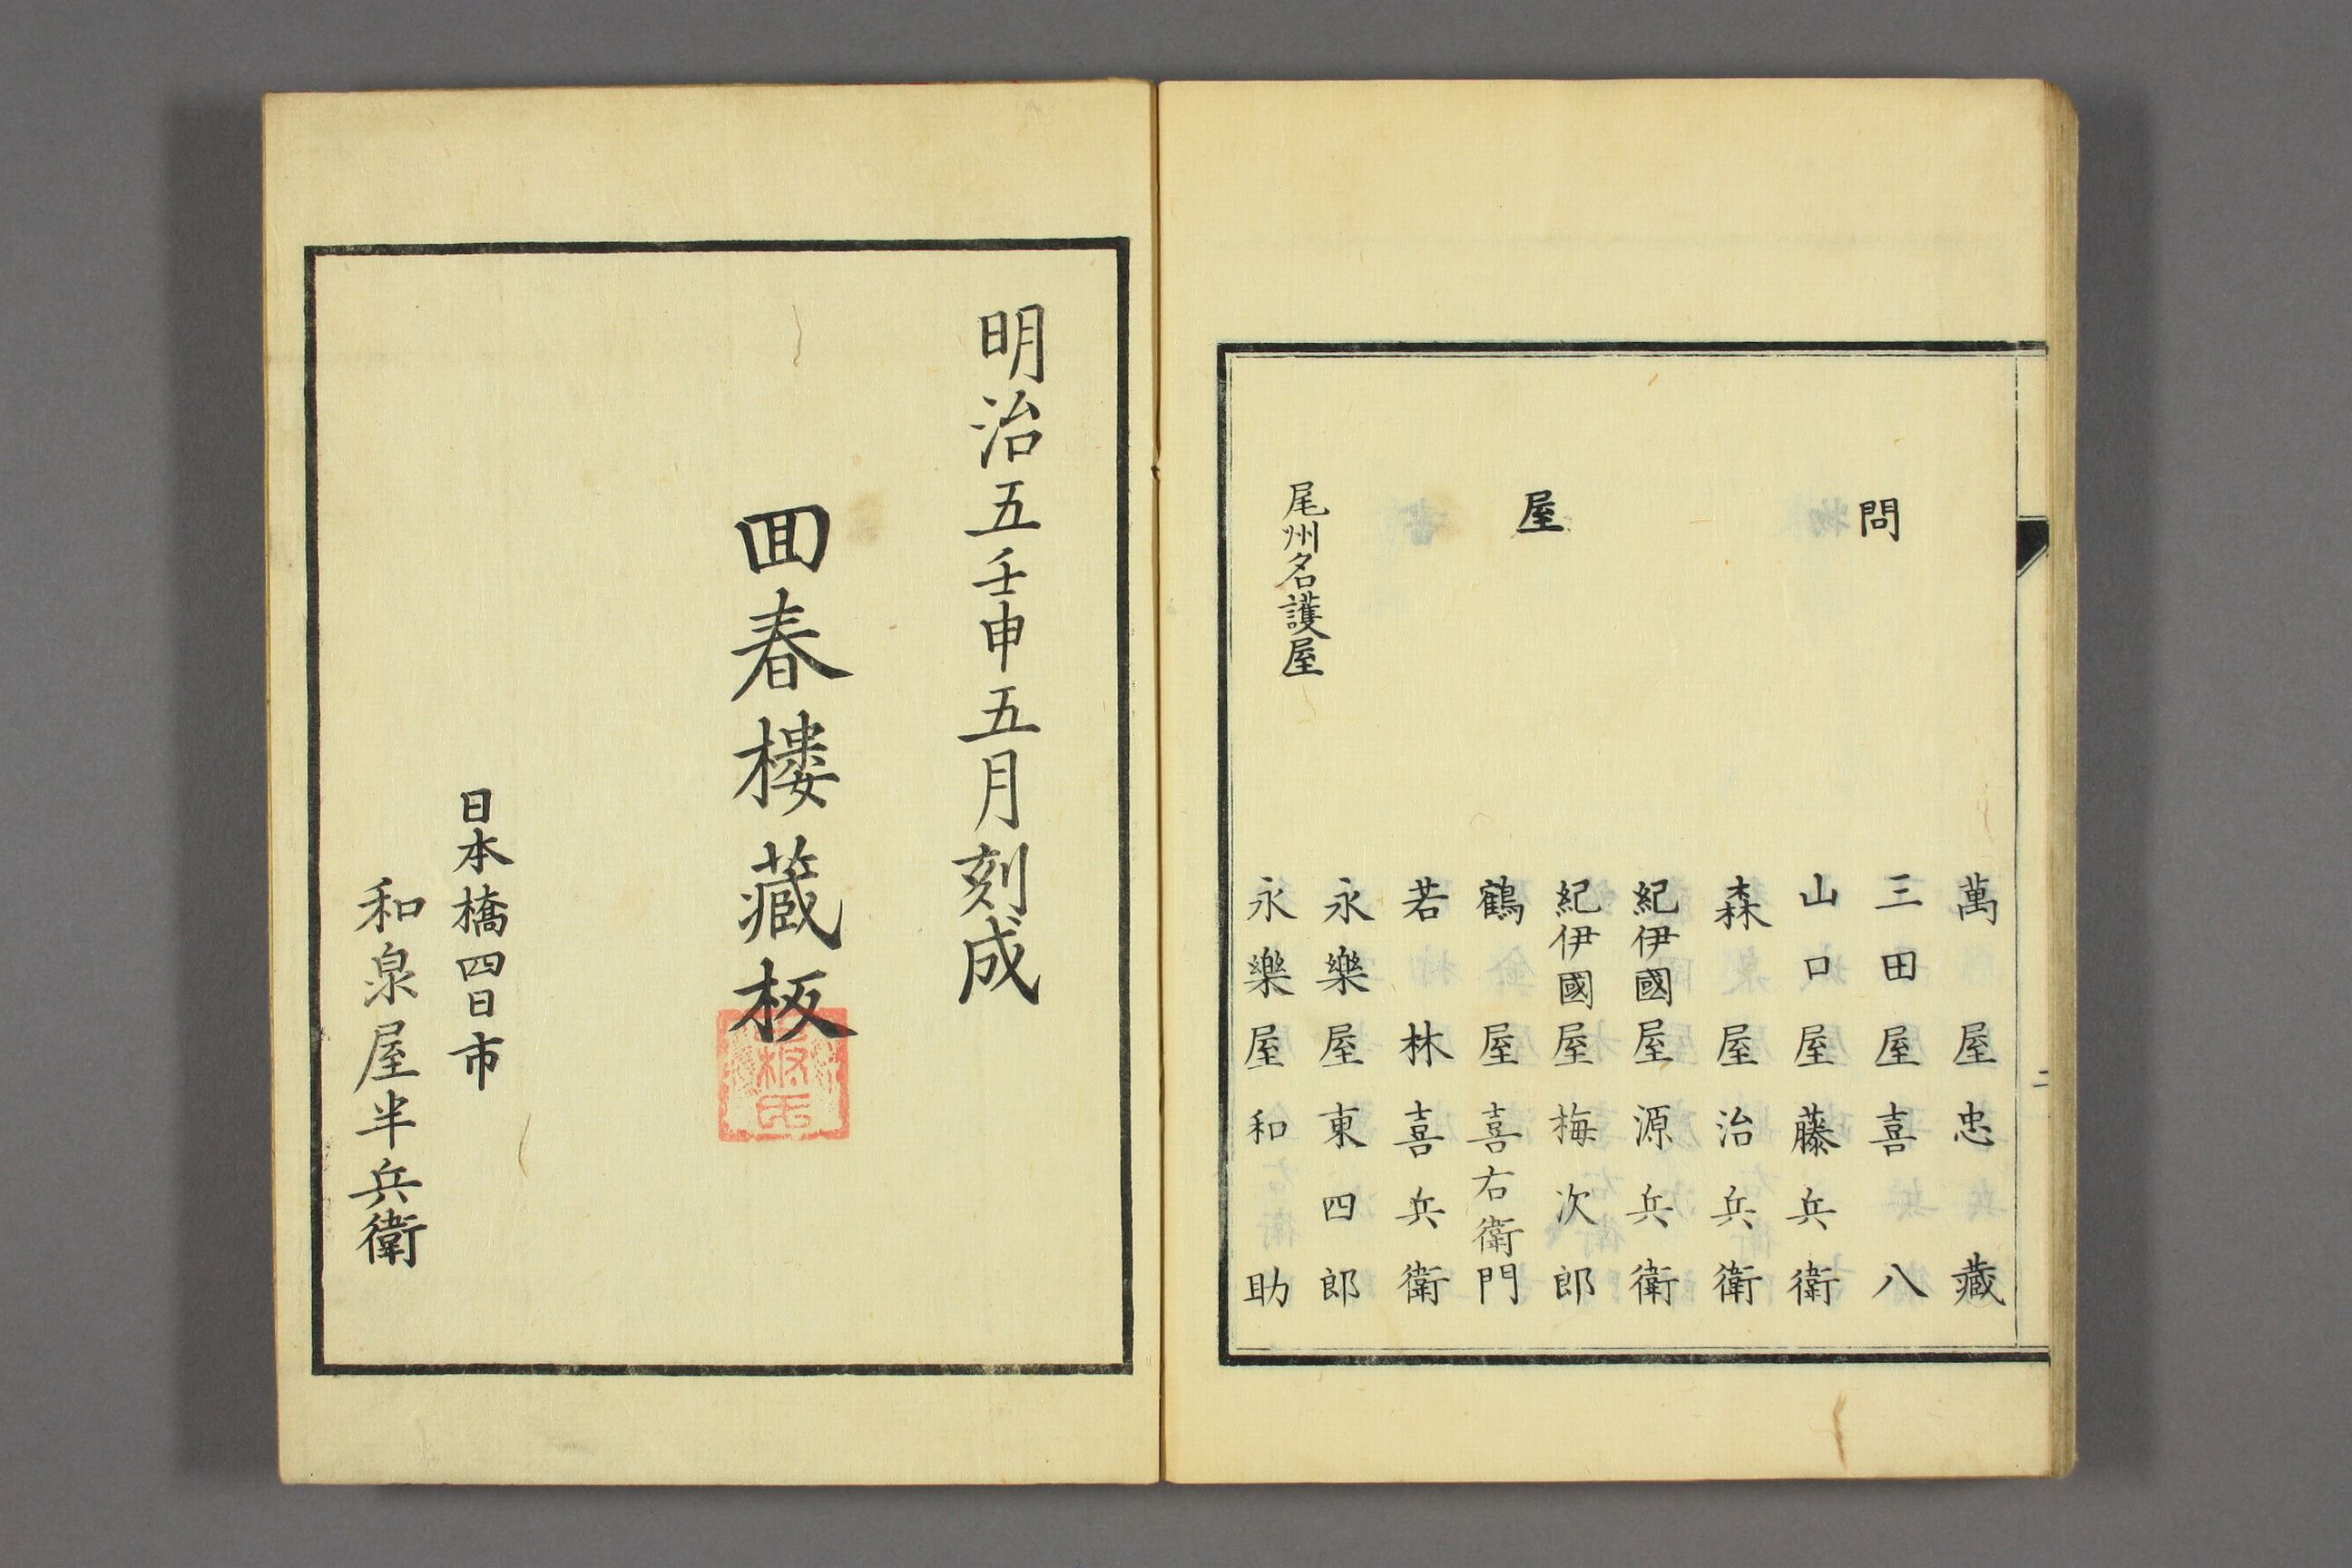 問
屋
萬屋忠藏
三田屋喜八
山口屋藤兵衛
森屋治兵衛
紀伊國屋源兵衛
紀伊國屋梅次郎
鶴屋喜右衛門
若林喜兵衛
永樂屋東四郎
尾州名護屋
永樂屋和助
二
明治五壬申五月刻成
回春樓藏板
日本橋四日市
和泉屋半兵衛